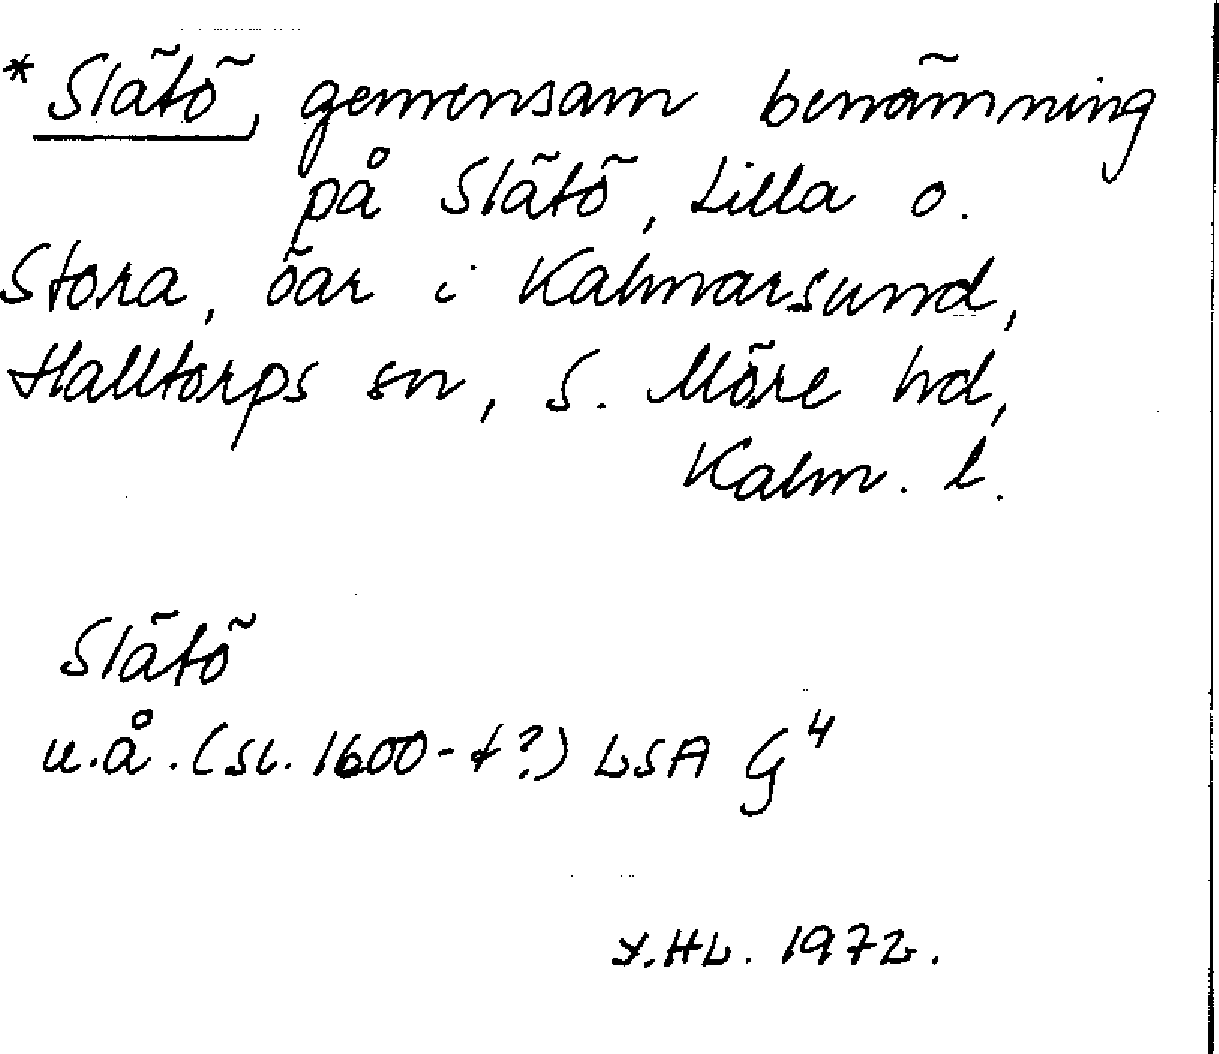 *Slätö, gemensam benämning
på Slätö, Lilla o.
Stora, öar i Kalmarsund,
Halltorps sn, S. Möre hd,
Kalm. l.
Slätö
u.å. (sl. 1600-t?) LSA G⁴
Y.HL. 1972.